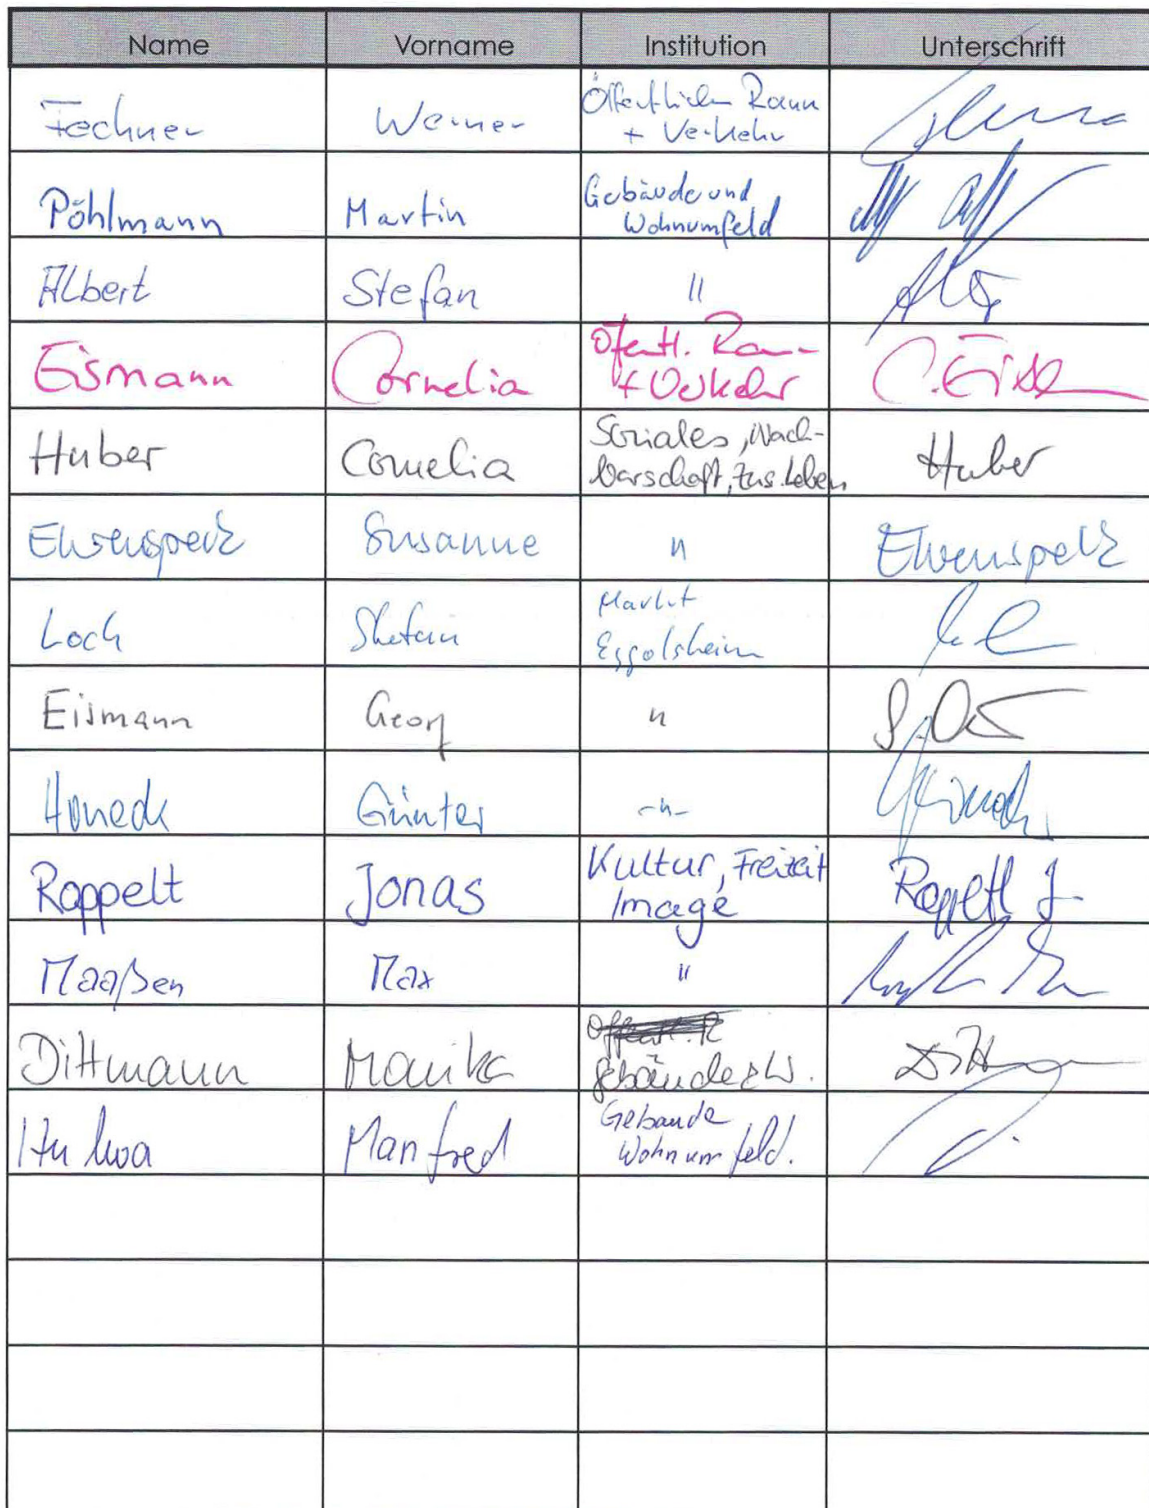 Name Vorname Institution Unterschrift
Fechner Werner Öffentlicher Raum
+ Verkehr
Pöhlmann Martin Gebäude und
Wohnumfeld
Albert Stefan "
Eismann Cornelia Öfentl. Raum
+ Verkehr C. Eism
Huber Cornelia Soziales, Nach-
barschaft, Zus.leben Huber
Ehrenspeck Susanne " Ehrenspeck
Loch Stefan Markt
Eggolsheim
Eismann Georg "
Honeck Günter -"-
Rappelt Jonas Kultur, Freizeit
Image Rappelt J.
Maaßen Max "
Dittmann Monika
Gebäude & W.
Manfred Gebäude
Wohnumfeld.